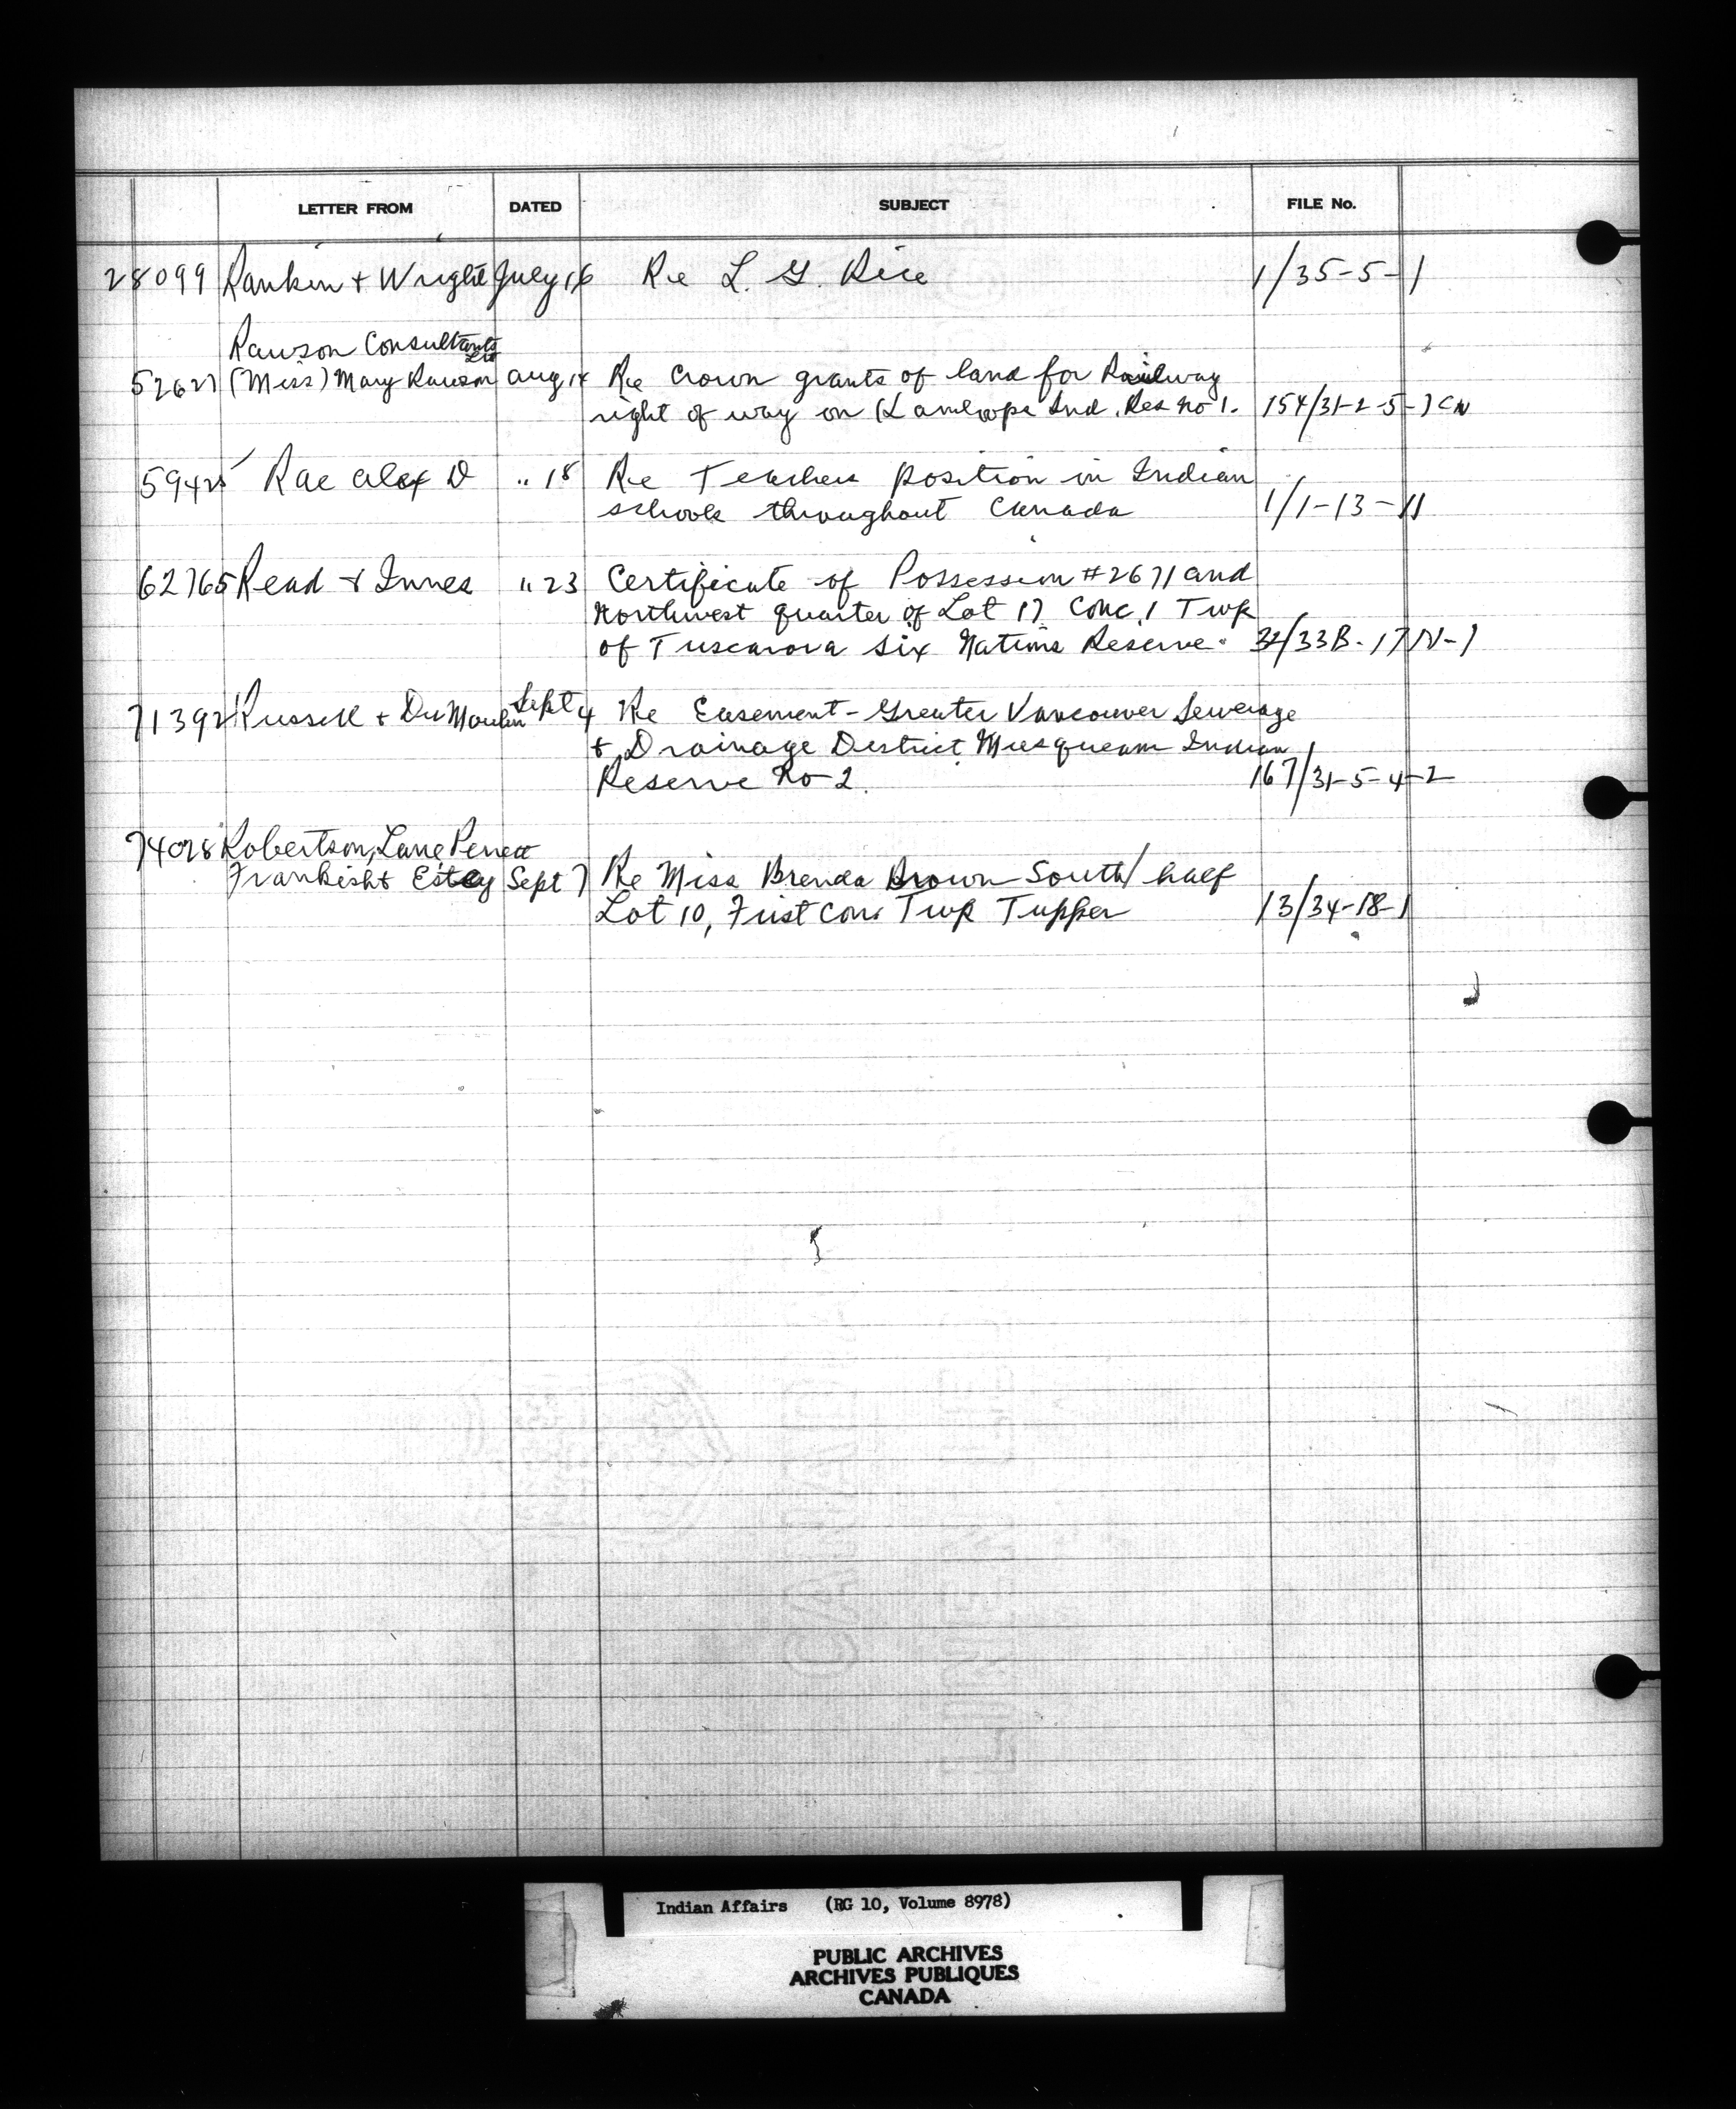 LETTER FROM DATED SUBJECT FILE No.
28099 Rankin + Wright July 16 Re L. G. Rice 1/35-5-1
Rawson Consultants Ltd
52627 (Miss) Mary Rawson Aug 14 Re Crown grants of land for Railway
right of way on Kamloops Ind. Res No 1. 154/31-2-5-7 CN
59425 Rae Alex D " 18 Re Teachers position in Indian
schools throughout Canada 1/1-13-11
62765 Read & Innes " 23 Certificate of Possession #2671 and
Northwest quarter of Lot 17 Conc. 1 Twp
of Tuscarora Six Nations Reserve. /33B-17N-1
71392 Russell + DuMoulin Sept 4 Re Easement - Greater Vancouver Sewerage
& Drainage District Musqueam Indian
Reserve No 2. 167/31-5-4-2
74028 Robertson, Lane, Perrett
Frankish & Estey Sept 7 Re Miss Brenda Brown South/half
Lot 10, First Con. Twp Tupper 13/34-18-1
Indian Affairs (RG 10, Volume 8978)
PUBLIC ARCHIVES
ARCHIVES PUBLIQUES
CANADA